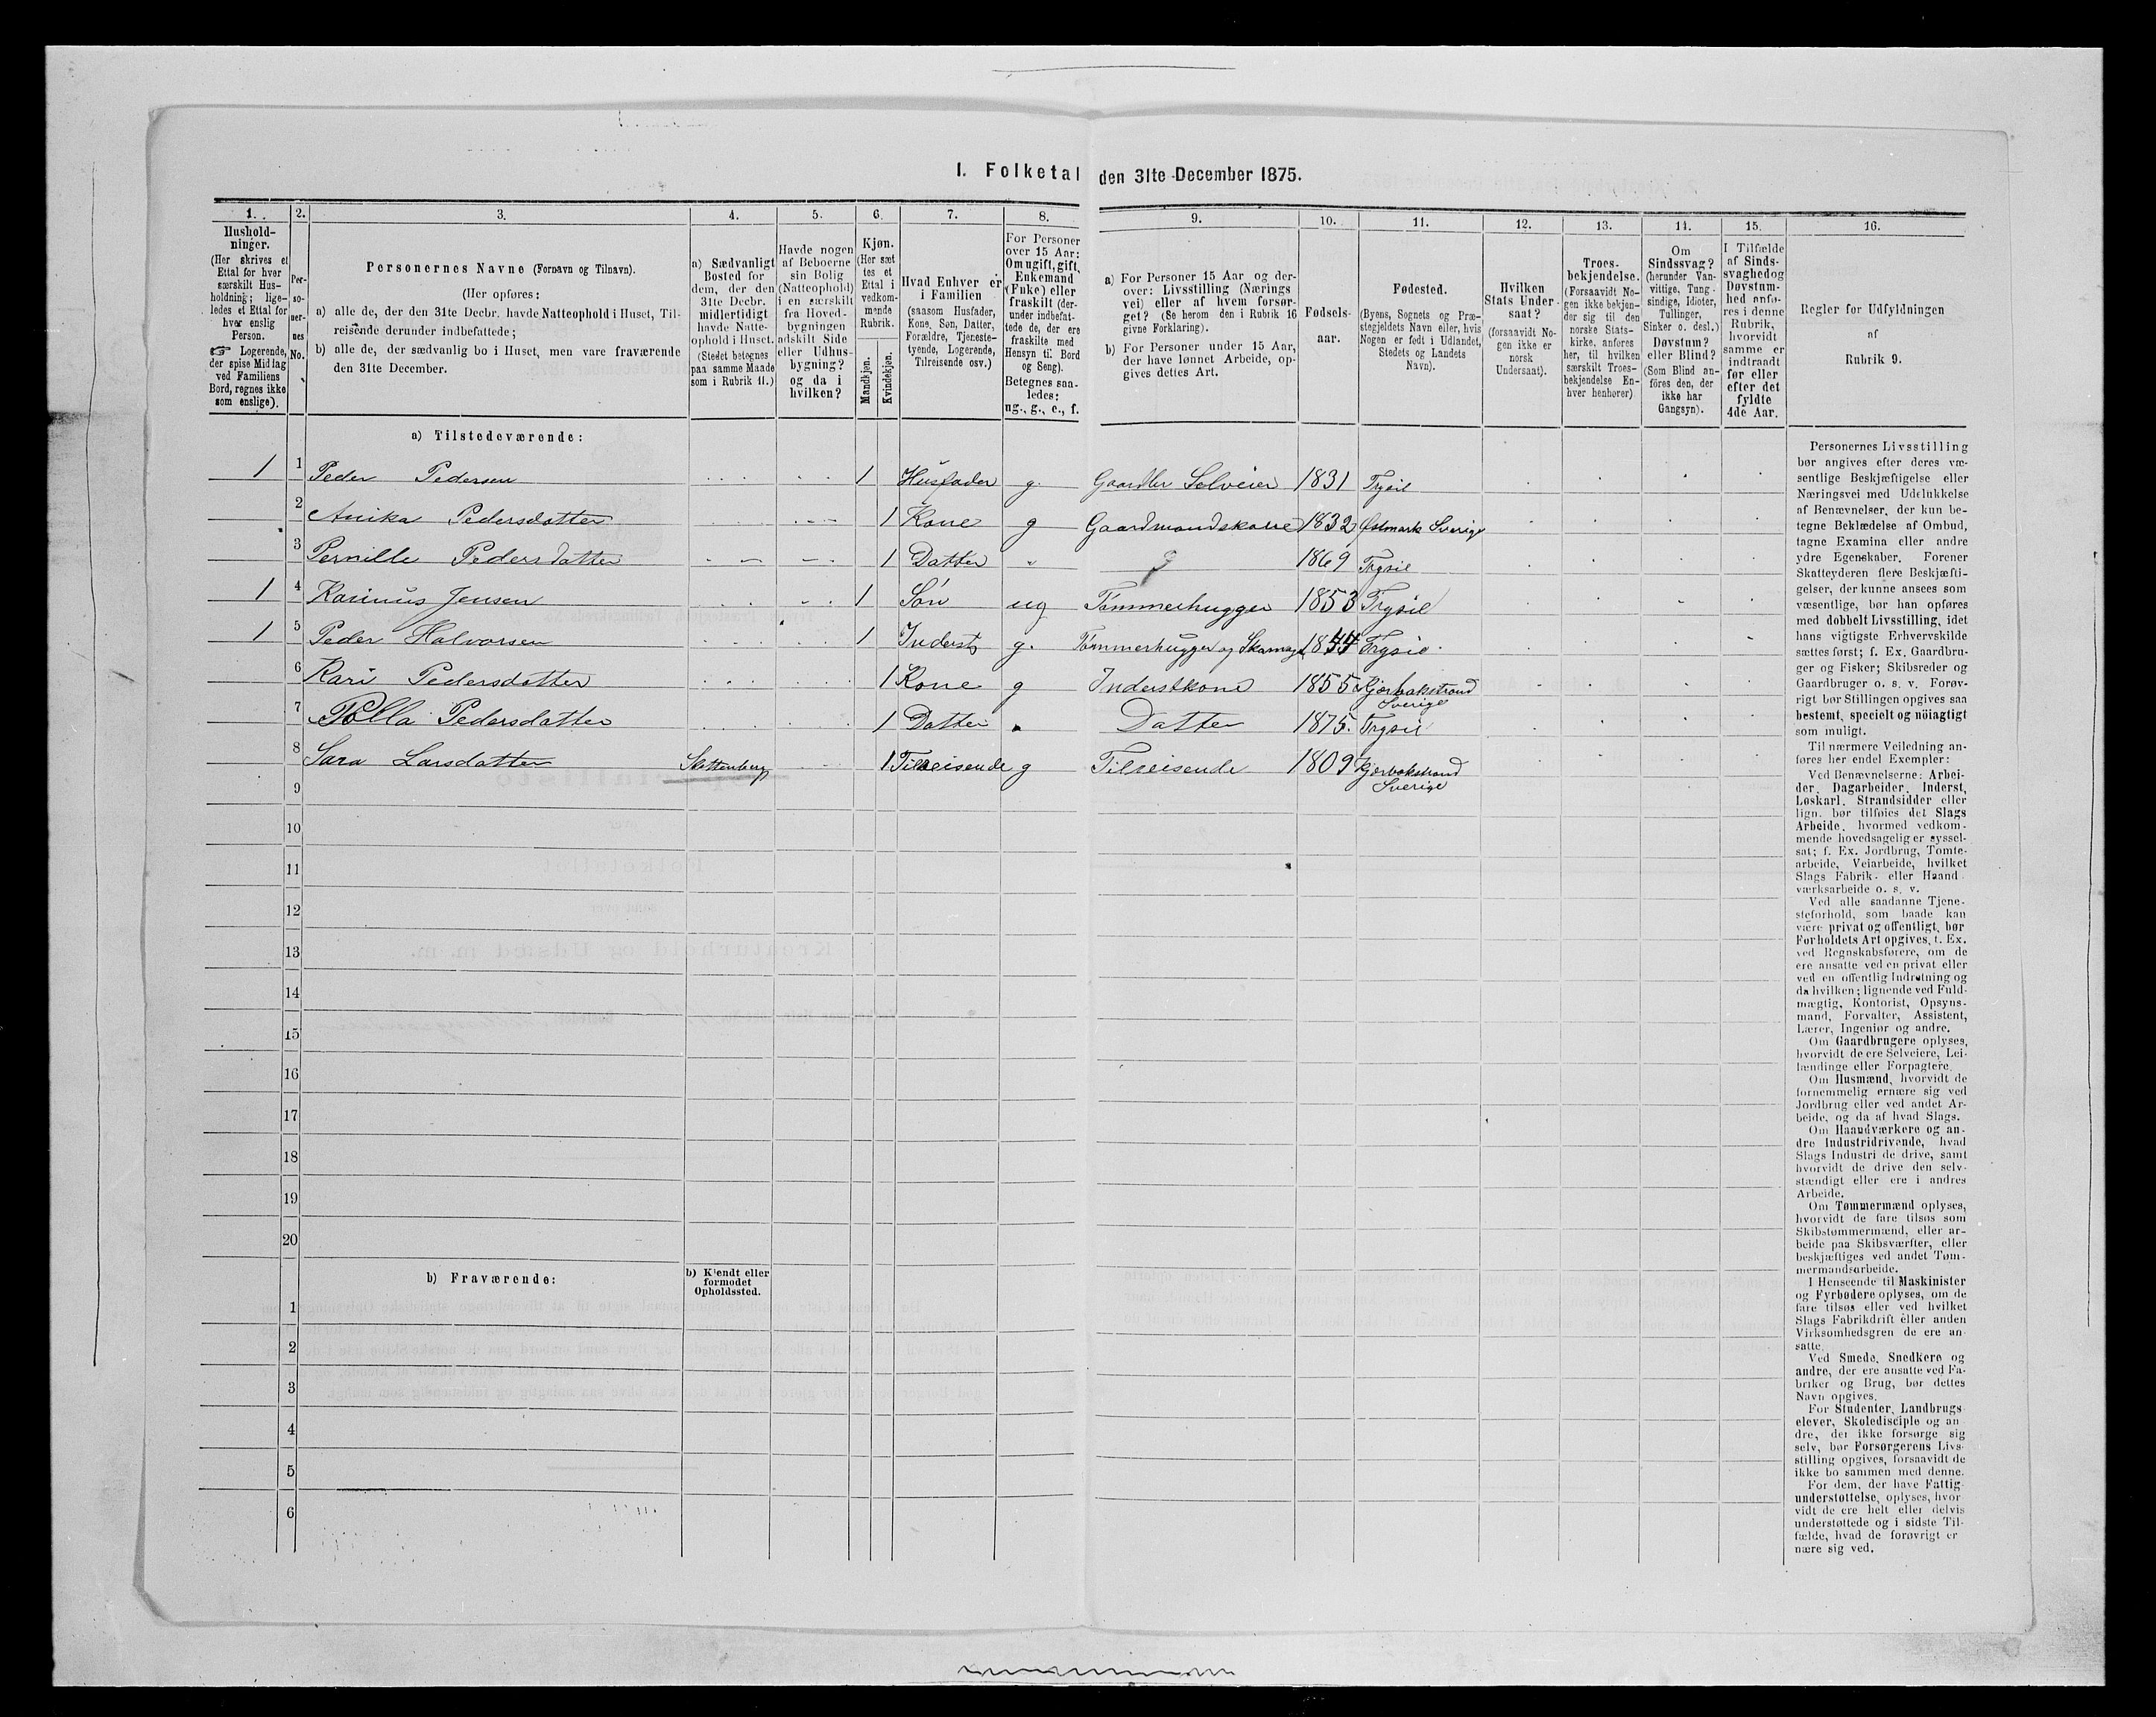 I. Folketal den 31te December 1875.
1. 2. 3. 4. 5. 6. 7. 8. 9. 10. 11. 12. 13. 14. 15. 16.
Hushold-
ninger.
(Her skrives et
Ettal for hver
særskilt Hus-
holdning; lige-
ledes et Ettal for
hver enslig
Person.
☞ Logerende,
der spise Middag
ved Familiens
Bord, regnes ikke
som enslige).
Per-
so-
ner-
nes
No.
Personernes Navne (Fornavn og Tilnavn).
(Her opføres:
a) alle de, der den 31te Decbr. havde Natteophold i Huset, Til-
reisende derunder indbefattede;
b) alle de, der sædvanlig bo i Huset, men vare fraværende
den 31te December.
a) Sædvanligt
Bosted for
dem, der den
31te Decbr.
midlertidigt
havde Natte-
ophold i Huset.
(Stedet betegnes
paa samme Maade
som i Rubrik 11.)
Havde nogen
af Beboerne
sin Bolig
(Natteophold)
i en særskilt
fra Hoved-
bygningen
adskilt Side
eller Udhus-
bygning?
og da i
hvilken?
Kjøn.
(Her sæt
tes et
Ettal i
vedkom-
mende
Rubrik.
Mandkjøn.
Kvindekjøn.
Hvad Enhver er
i Familien
(saasom Husfader,
Kone, Søn, Datter,
Forældre, Tjeneste-
tyende, Logerende,
Tilreisende osv.)
For Personer
over 15 Aar:
Om ugift, gift,
Enkemand
(Enke) eller
fraskilt (der-
under indbefat-
tede de, der ere
fraskilte med
Hensyn til Bord
og Seng).
Betegnes saa-
ledes:
ug., g., e., f.
a) For Personer 15 Aar og der-
over: Livsstilling (Nærings
vei) eller af hvem forsør-
get? (Se herom den i Rubrik 16
givne Forklaring).
b) For Personer under 15 Aar,
der have lønnet Arbeide, op-
gives dettes Art.
Fødsels-
aar.
Fødested.
(Byens, Sognets og Præ-
stegjeldets Navn eller, hvis
Nogen er født i Udlandet,
Stedets og Landets
Navn).
Hvilken
Stats Under-
saat?
(forsaavidt No-
gen ikke er
norsk
Undersaat).
Troes-
bekjendelse.
(Forsaavidt No-
gen ikke bekjen-
der sig til den
norske Stats-
kirke, anføres
her, til hvilken
særskilt Troes-
bekjendelse En-
hver henhører)
Om
Sindssvag?
(herunder Van-
vittige, Tung-
sindige, Idioter,
Sinker o. desl.)
Døvstum?
eller Blind?
(Som Blind an-
föres den, der
ikke har
Gangsyn).
I Tilfælde
af Sinds-
svaghed og
Døvstum-
hed anfø-
res i denne
Rubrik,
hvorvidt
samme er
indtraadt
før eller
efter det
fyldte
4de Aar.
Regler for Udfyldningen
af
Rubrik 9.
a) Tilstedeværende:
1 1 Peder Pedersen 1 Husfader g. Gaardbr Selveier 1831 Trysil
2 Anika Pedersdatter 1 Kone g Gaardmandskone 1832 Østmark Sverige
3 Pernille Pedersdatter 1 Datter 1869 Trysil
1 4 Karinus Jensen 1 Søn ug Tømmerhugger 1853 Trysil
1 5 Peder Halvorsen 1 Inderst g. Tømmerhugger og 1844 Trysil
6 Kari Pedersdatter 1 Kone g Inderstkone 1855
Sverige
7 Polla Pedersdatter 1 Datter Datter 1875. Trysil
8 Sara Larsdatter 1 Tilreisende g Tilreisende 1809
Sverige
9
10
11
12
13
14
15
16
17
18
19
20
b) Fraværende:
b) Kjendt eller
formodet
Opholdssted.
1
2
3
4
5
6
Personernes Livsstilling
bør angives efter deres væ-
sentlige Beskjæftigelse eller
Næringsvei med Udelukkelse
af Benævnelser, der kun be-
tegne Beklædelse af Ombud,
tagne Examina eller andre
ydre Egenskaber. Forener
Skatteyderen flere Beskjæfti-
gelser, der kunne ansees som
væsentlige, bør han opføres
med dobbelt Livsstilling, idet
hans vigtigste Erhvervskilde
sættes først; f. Ex. Gaardbru-
ger og Fisker; Skibsreder og
Gaardbruger o. s. v. Forøv-
rigt bør Stillingen opgives saa
bestemt, specielt og nöiagtigt
som muligt.
Til nærmere Veiledning an-
føres her endel Exempler:
Ved Benævnelserne: Arbei-
der, Dagarbeider, Inderst,
Løskarl, Strandsidder eller
lign. bør tilføies det Slags
Arbeide, hvormed vedkom-
mende hovedsagelig er syssel-
sat; f. Ex. Jordbrug, Tomte-
arbeide, Veiarbeide, hvilket
Slags Fabrik- eller Haand-
værksarbeide o. s. v.
Ved alle saadanne Tjene-
steforhold, som baade kan
være privat og offentligt, bør
Forholdets Art opgives, t. Ex.
ved Regnskabsførere, om de
ere ansatte ved en privat eller
ved en offentlig Indretning og
da hvilken; lignende ved Fuld-
mægtig, Kontorist, Opsyns-
mand, Forvalter, Assistent,
Lærer, Ingeniør og andre.
Om Gaardbrugere oplyses,
hvorvidt de ere Selveiere, Lei-
lændinge eller Forpagtere.
Om Husmænd, hvorvidt de
fornemmelig ernære sig ved
Jordbrug eller ved andet Ar-
beide, og da af hvad Slags.
Om Haandværkere og an-
dre Industridrivende, hvad
Slags Industri de drive, samt
hvorvidt de drive den selv-
stændigt eller ere i andres
Arbeide.
Om Tømmermænd oplyses,
hvorvidt de fare tilsøs som
Skibstømmermænd, eller ar-
beide paa Skibsværfter, eller
beskjæftiges ved andet Tøm-
mermandsarbeide.
I Henseende til Maskinister
og Fyrbødere oplyses, om de
fare tilsøs eller ved hvilket
Slags Fabrikdrift eller anden
Virksomhedsgren de ere an
satte.
Ved Smede, Snedkere og
andre, der ere ansatte ved Fa-
briker og Brug, bør dettes
Navn opgives.
For Studenter, Landbrugs
elever, Skoledisciple og an
dre, der ikke forsørge sig
selv, bør Forsørgerens Livs-
stilling opgives, forsaavidt de
ikke bo sammen med denne.
For dem, der have Fattig-
understøttelse, oplyses, hvor
vidt de ere helt eller delvis
understøttede og i sidste Til-
fælde, hvad de forøvrigt er
nære sig ved.